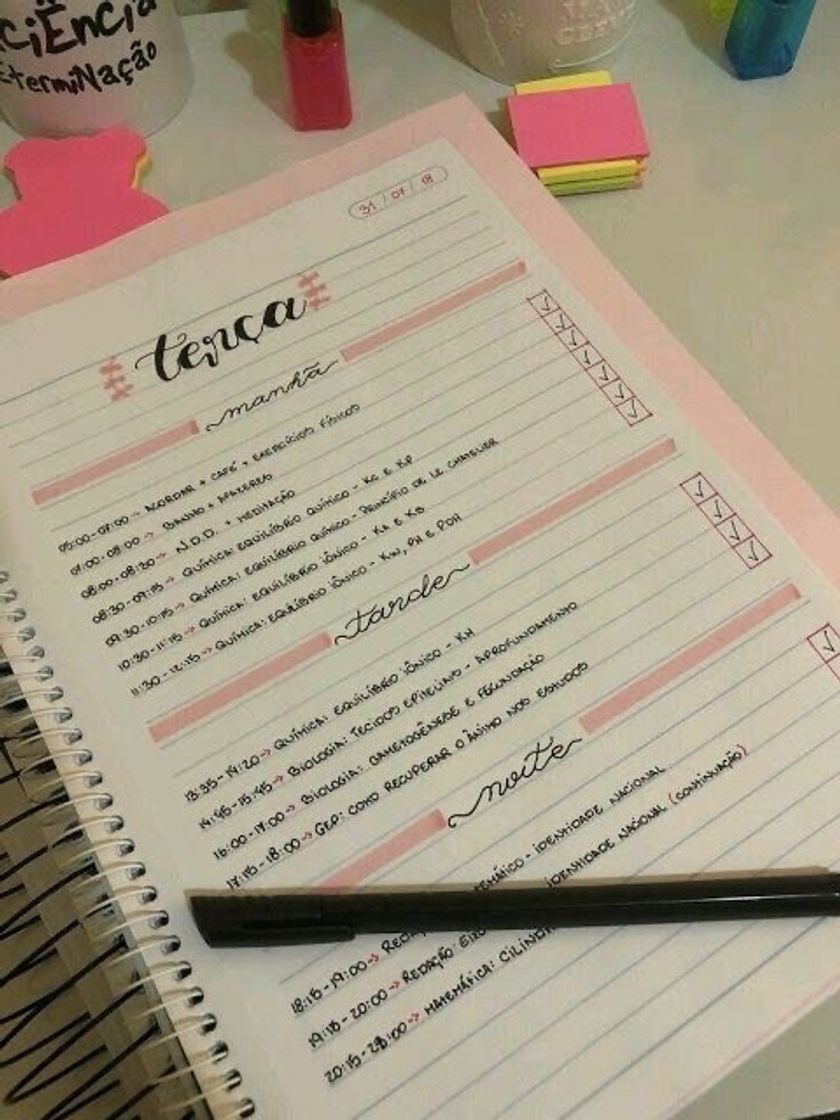 ciência
determinação
31/07/18
terça
manhã
05:00-07:00 → ACORDAR + CAFÉ + EXERCÍCIOS FÍSICOS
07:00-08:00 → BANHO + AFAZERES
08:00-08:30 → N.D.D. + MEDITAÇÃO
08:30-09:15 → QUÍMICA: EQUILÍBRIO QUÍMICO - KC E KP
09:30-10:15 → QUÍMICA: EQUILÍBRIO QUÍMICO - PRINCÍPIO DE LE CHATELIER
10:30-11:15 → QUÍMICA: EQUILÍBRIO IÔNICO - KA E KB
11:30-12:15 → QUÍMICA: EQUILÍBRIO IÔNICO - KW, PH E POH
tarde
13:35-14:20 → QUÍMICA: EQUILÍBRIO IÔNICO - KH
14:45-15:45 → BIOLOGIA: TECIDOS EPITELIAIS - APROFUNDAMENTO
16:00-17:00 → BIOLOGIA: GAMETOGÊNESE E FECUNDAÇÃO
17:15-18:00 → GEP: COMO RECUPERAR O ÂNIMO NOS ESTUDOS
noite
18:15-19:00 → TEMÁTICO - IDENTIDADE NACIONAL
19:15-20:00 → REDAÇÃO: EIXO IDENTIDADE NACIONAL (CONTINUAÇÃO)
20:15- → MATEMÁTICA: